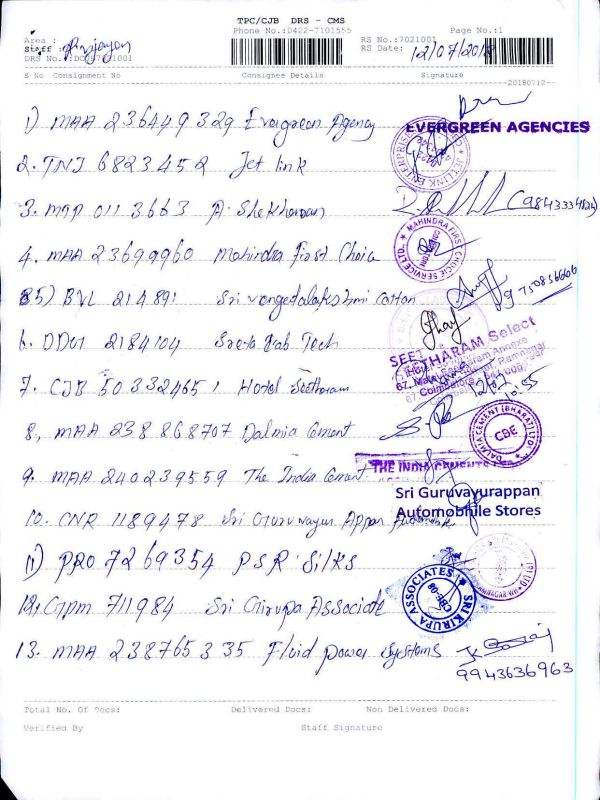 TPC/CJB DRS - CMS
Phone No.:0422-7101555 Page No.:1
Area : RS No.:7021001
Staff : RS Date: 12/07/2018
DRS No.:
S No Consignment No Consignee Details Signature
20180712
1) MAA 236449329 Evergreen Agency
EVERGREEN AGENCIES
2. TNJ 6823452 Jet link
3. MTP 0113663 A. Shekharan
4. MAA 23699960 Mahindra First Choice
MAHINDRA FIRST CHOICE SERVICE LTD.
5) BVL 214891 Sri Vengatalakshmi Cotton
9750836606
6. DDU1 2184104 Tech
7. CJB 503324651 Hotel Seetharam
SEETHARAM Select
12/07
10.55
8. MAA 238868707 Dalmia Cement
DALMIA CEMENT (BHARAT) LTD.
CBE
9. MAA 240239559 The India Cement
THE INDIA CEMENTS
10. CNR 1189478 Sri Guruvayur Appan
Sri Guruvayurappan
Automobhile Stores
11) PRO 7269354 PSR Silks
12. GPM 711984 Sri Girupa Associate
SRI KIRUPA ASSOCIATES
CBE-08
13. MAA 238765335 Fluid power systems
9943636963
Total No. Of Docs: Delivered Docs: Non Delivered Docs:
Verified By Staff Signature